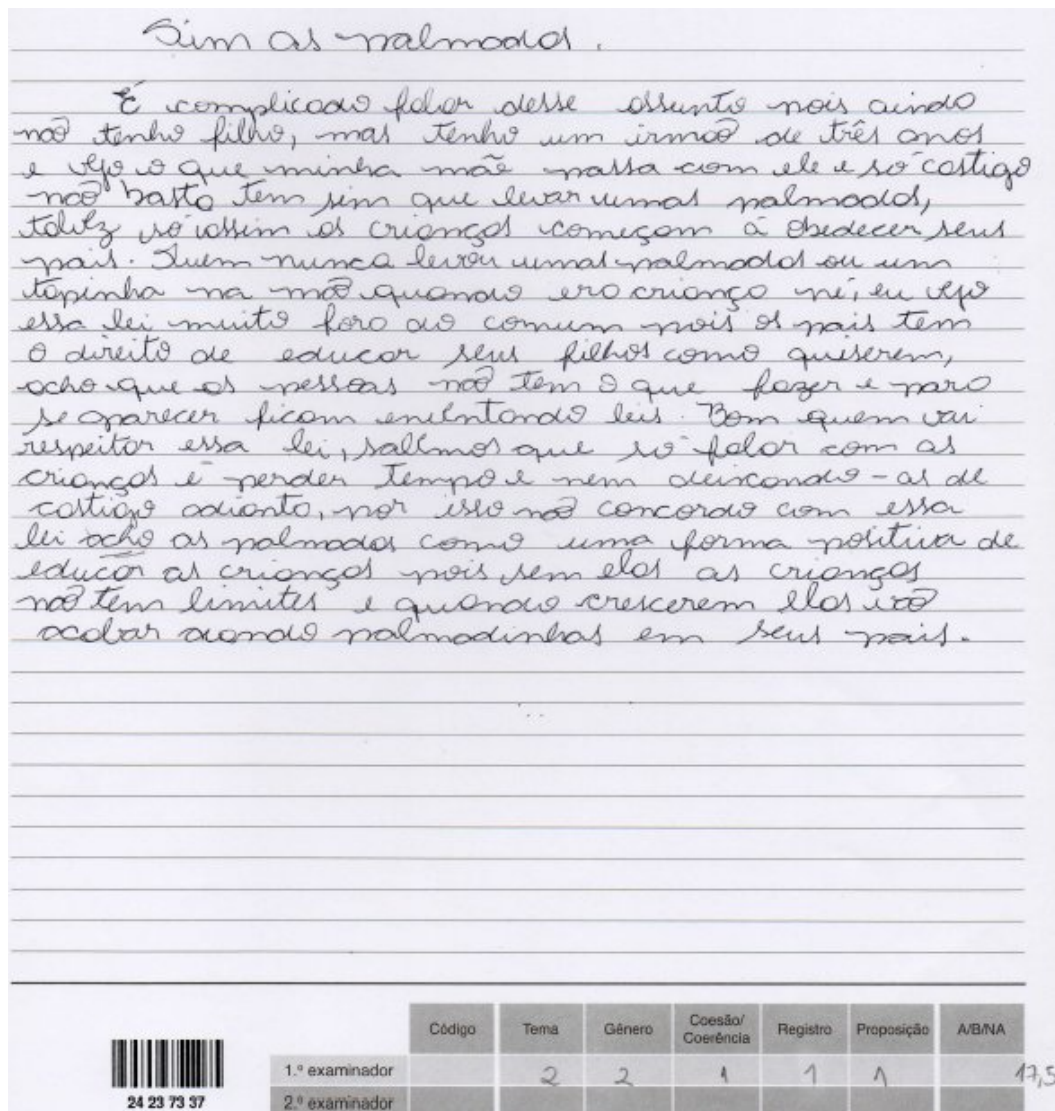 Sim as palmadas.
É complicado falar desse assunto pois ainda
não tenho filho, mas tenho um irmão de três anos
e vejo o que minha mãe passa com ele e só castigo
não basta tem sim que levar umas palmadas,
talvez só assim as crianças começam à obedecer seus
pais. Quem nunca levou umas palmadas ou um
tapinha na mão quando era criança né, eu vejo
essa lei muito fora do comum pois os pais tem
o direito de educar seus filhos como quiserem,
acho que as pessoas não tem o que fazer e para
se aparecer ficam enventando leis. Bom quem vai
respeitar essa lei, sabemos que só falar com as
crianças é perder tempo e nem deixando-as de
castigo adianta, por isso não concordo com essa
lei acho as palmadas como uma forma positiva de
educar as crianças pois sem elas as crianças
não tem limites e quando crescerem elas irão
acabar dando palmadinhas em seus pais.
Código Tema Gênero Coesão/Coerência Registro Proposição A/B/NA
1.º examinador 2 2 1 1 1 17,5
24 23 73 37 2.º examinador